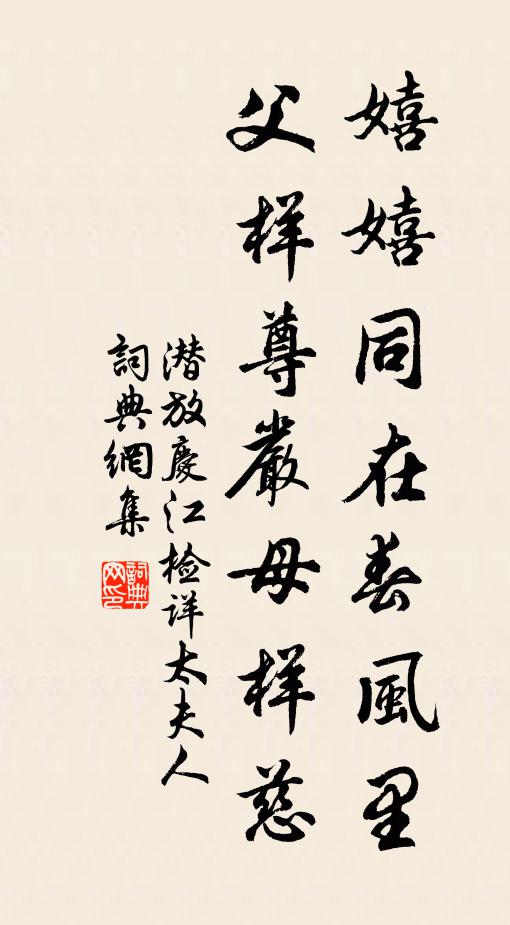 嬉嬉同在春風里
父样尊嚴母样慈
潜放慶江檢详太夫人
詞典網集
詞典网印